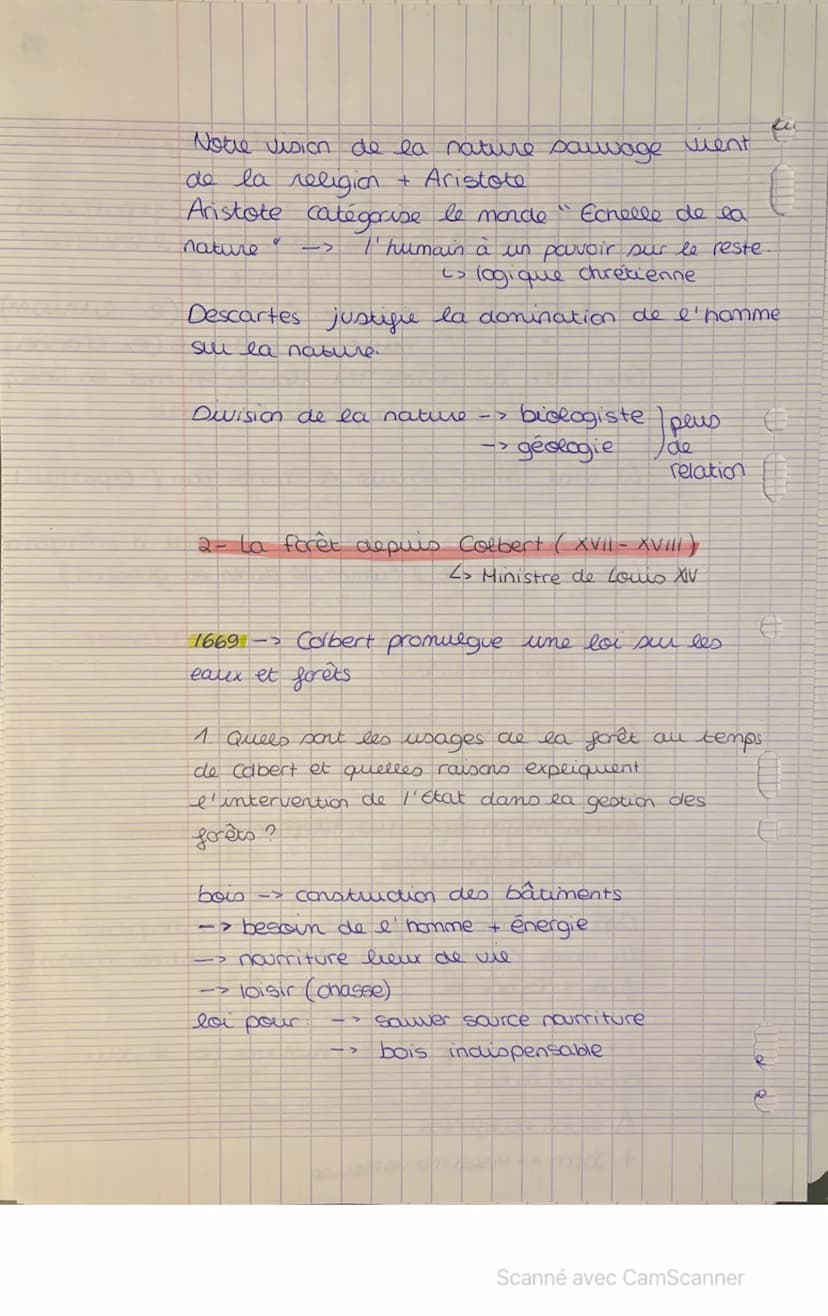 Notre vision de la nature sauvage vient
de la religion + Aristote
Aristote catégorise le monde " Echelle de la
nature " --> l'humain à un pouvoir sur le reste.
↳ logique chrétienne
Descartes justifie la domination de l'homme
sur la nature.
Division de la nature --> biologiste
--> géologie
peus
de
relation
2- La forêt depuis Colbert ( XVII - XVIII )
↳ Ministre de Louis XIV
1669 --> Colbert promulgue une loi sur les
eaux et forêts
1 Quels sont les usages de la forêt au temps
de Colbert et quelles raisons expliquent
l'intervention de l'Etat dans la gestion des
forêts ?
bois --> construction des bâtiments
--> besoin de l'homme + énergie
--> nourriture lieux de vie
--> loisir (chasse)
loi pour : --> sauver source nourriture
--> bois indispensable
Scanné avec CamScanner